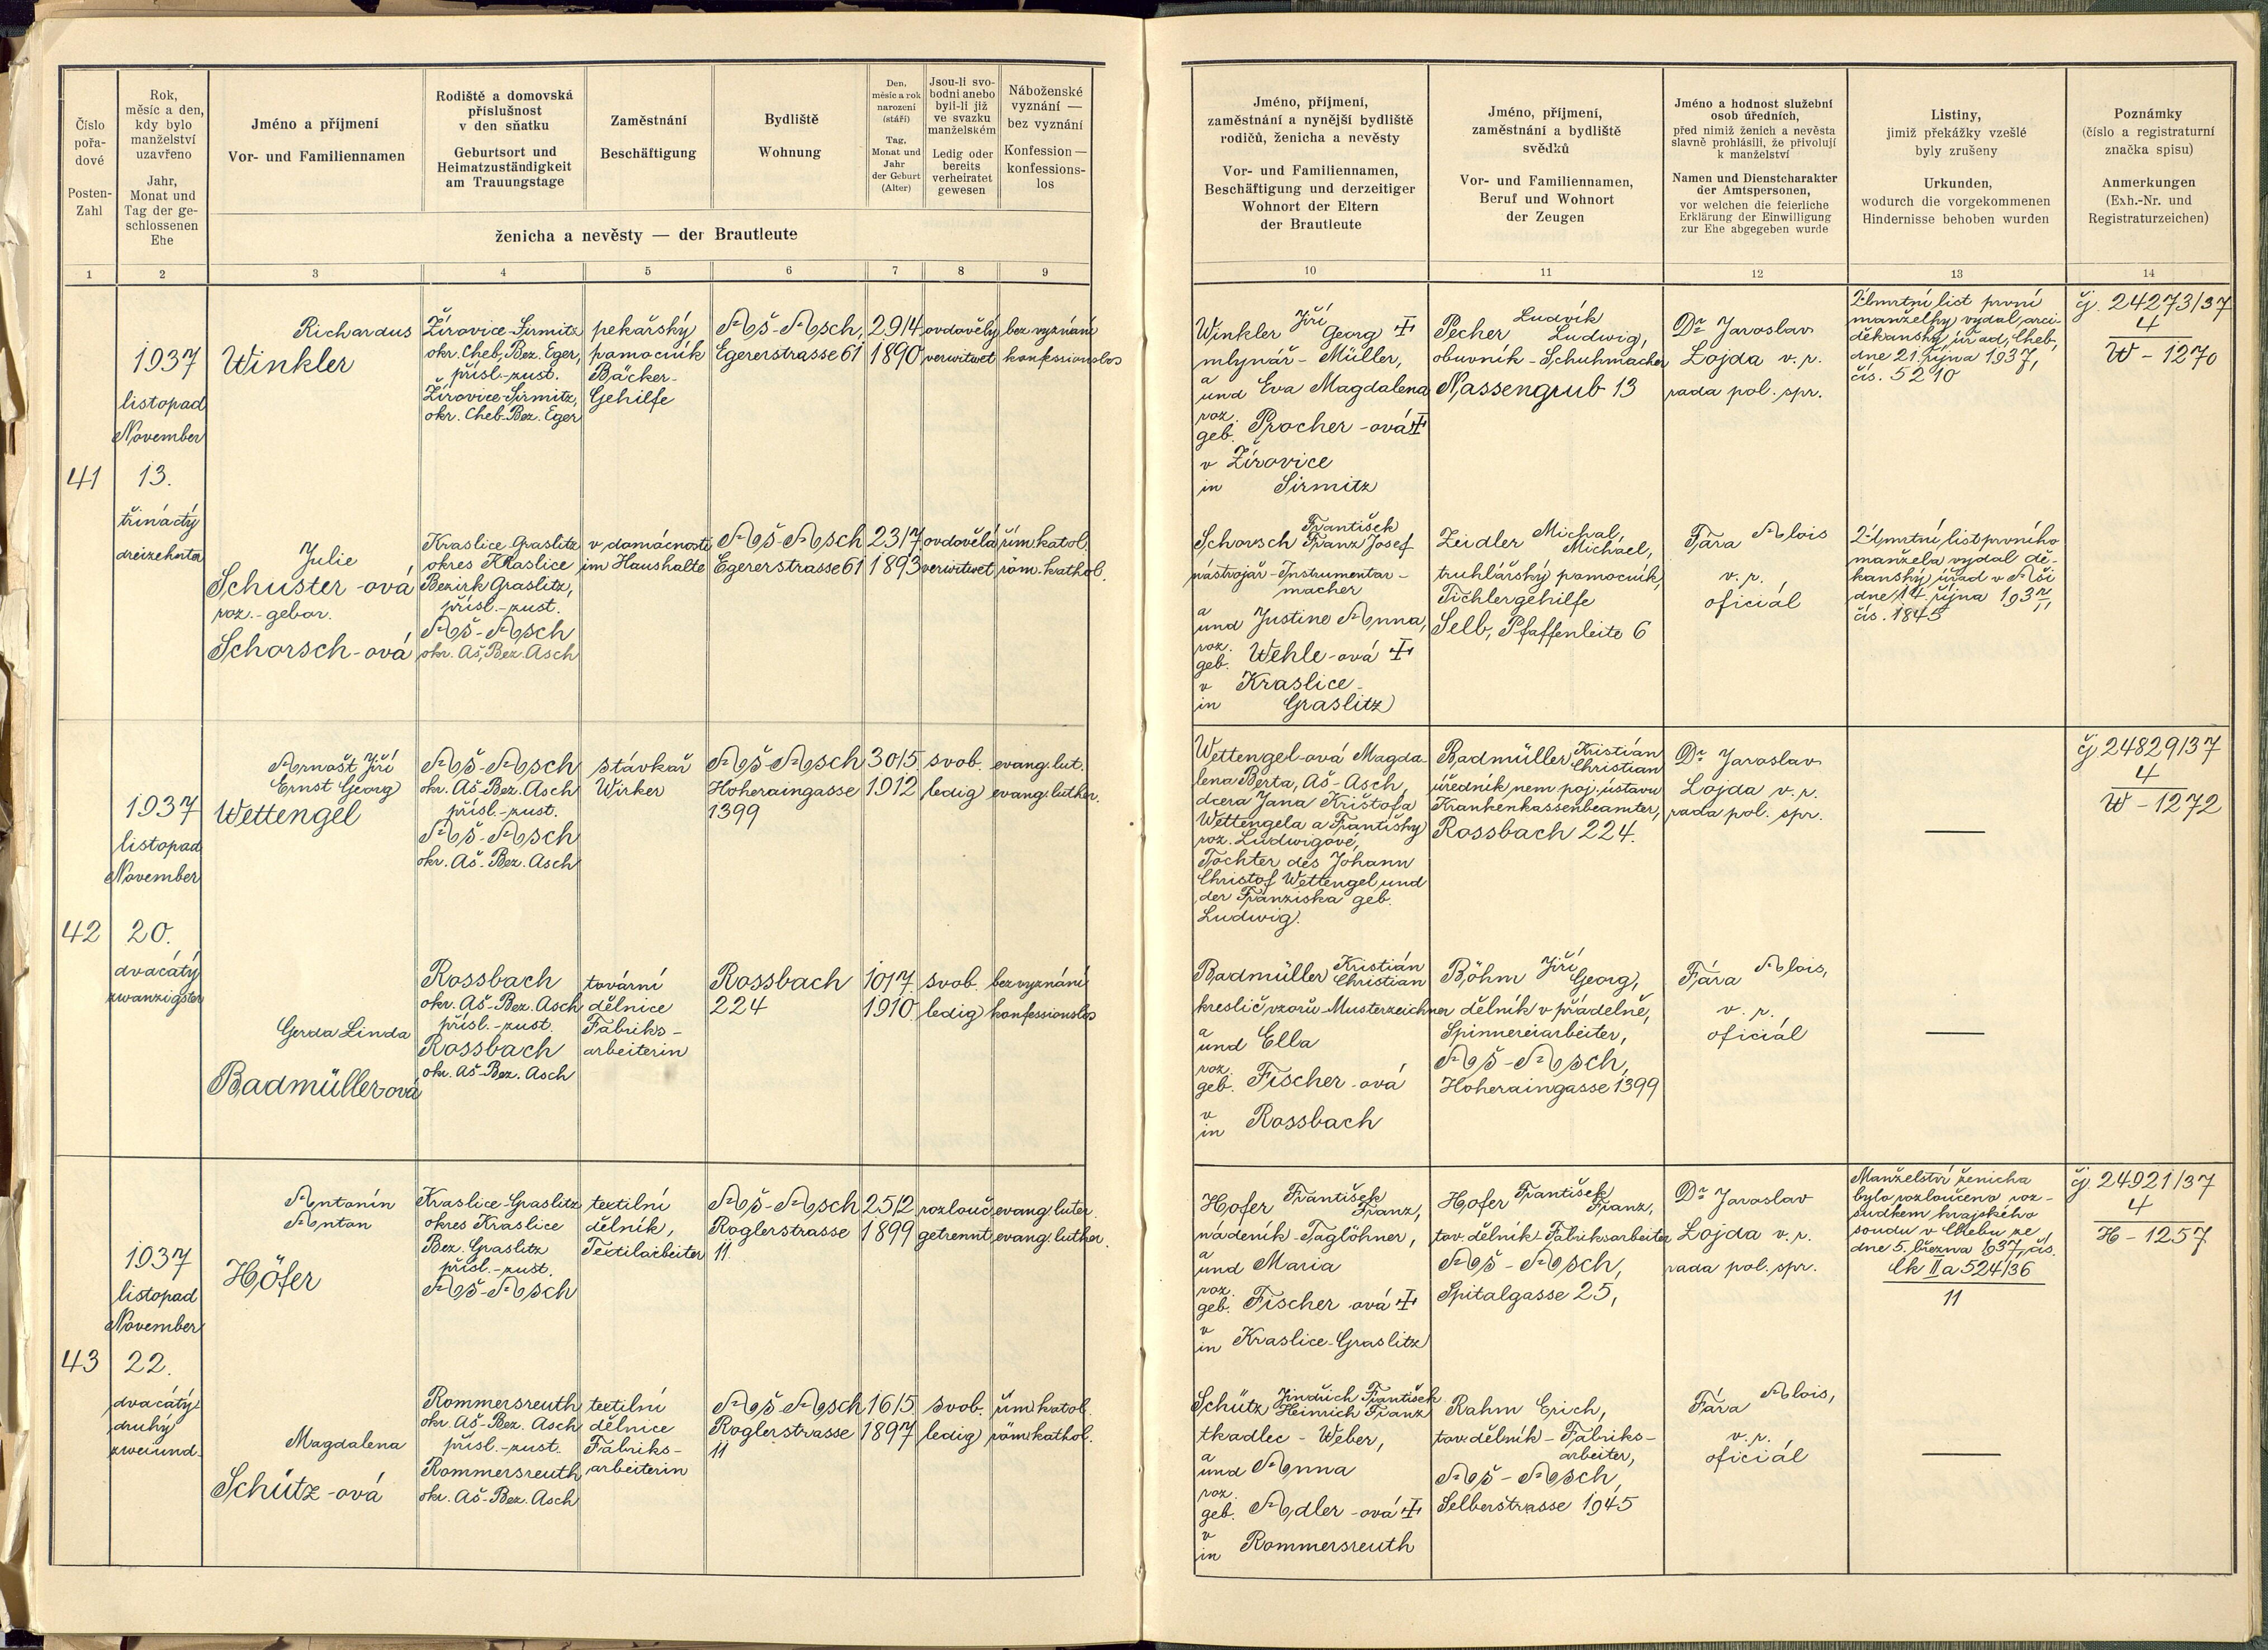 Číslo
pořa-
dové
Posten-
Zahl
Rok,
měsíc a den,
kdy bylo
manželství
uzavřeno
Jahr,
Monat und
Tag der ge-
schlossenen
Ehe
Jméno a příjmení
Vor- und Familiennamen
Rodiště a domovská
příslušnost
v den sňatku
Geburtsort und
Heimatzuständigkeit
am Trauungstage
Zaměstnání
Beschäftigung
Bydliště
Wohnung
Den,
měsíc a rok
narození
(stáří)
Tag,
Monat und
Jahr
der Geburt
(Alter)
Jsou-li svo-
bodni anebo
byli-li již
ve svazku
manželském
Ledig oder
bereits
verheiratet
gewesen
Náboženské
vyznání —
bez vyznání
Konfession —
konfessions-
los
ženicha a nevěsty — der Brautleute
1 2 3 4 5 6 7 8 9
41
1937
listopad
November
13.
třináctý
dreizehnter
Richardus
Winkler
Žírovice-Sirmitz
okr. Cheb, Bez. Eger,
přísl.-zust.
Žírovice-Sirmitz,
okr. Cheb-Bez. Eger
pekařský
pomocník
Bäcker-
Gehilfe
Aš-Asch,
Egererstrasse 61
29/4
1890
ovdovělý
verwitwet
bez vyznání
konfessionslos
Julie
Schuster-ová
roz.-gebor.
Schorsch-ová
Kraslice Graslitz
okres Kraslice
Bezirk Graslitz,
přísl.-zust.
Aš-Asch
okr. Aš, Bez. Asch
v domácnosti
im Haushalte
Aš-Asch
Egererstrasse 61
23/7
1893
ovdovělá
verwitwet
řím. katol.
röm. kathol.
42
1937
listopad
November
20.
dvacátý
zwanzigster
Arnošt Jiří
Ernst Georg
Wettengel
Aš-Asch
okr. Aš-Bez. Asch
přísl.-zust.
Aš-Asch
okr. Aš-Bez. Asch
stávkař
Wirker
Aš-Asch
Hoheraingasse
1399
30/5
1912
svob.
ledig
evang. lut.
evang. luther.
Gerda Linda
Badmüllerová
Rossbach
okr. Aš-Bez. Asch
přísl.-zust.
Rossbach
okr. Aš-Bez. Asch
tovární
dělnice
Fabriks-
arbeiterin
Rossbach
224
10/7
1910
svob.
ledig
bez vyznání
konfessionslos
43
1937
listopad
November
22.
dvacátý
druhý
zweiund.
Antonín
Anton
Höfer
Kraslice-Graslitz
okres Kraslice
Bez. Graslitz
přísl.-zust.
Aš-Asch
textilní
dělník,
Textilarbeiter
Aš-Asch
Roglerstrasse
11
25/2
1899
rozlouč.
getrennt
evang. luter.
evang. luther.
Magdalena
Schütz-ová
Rommersreuth
okr. Aš-Bez. Asch
přísl.-zust.
Rommersreuth
okr. Aš-Bez. Asch
textilní
dělnice
Fabriks-
arbeiterin
Aš-Asch
Roglerstrasse
11
16/5
1897
svob.
ledig
řím. katol.
röm. kathol.
Jméno, příjmení,
zaměstnání a nynější bydliště
rodičů, ženicha a nevěsty
Vor- und Familiennamen,
Beschäftigung und derzeitiger
Wohnort der Eltern
der Brautleute
Jméno, příjmení,
zaměstnání a bydliště
svědků
Vor- und Familiennamen,
Beruf und Wohnort
der Zeugen
Jméno a hodnost služební
osob úředních,
před nimiž ženich a nevěsta
slavně prohlásili, že přivolují
k manželství
Namen und Dienstcharakter
der Amtspersonen,
vor welchen die feierliche
Erklärung der Einwilligung
zur Ehe abgegeben wurde
Listiny,
jimiž překážky vzešlé
byly zrušeny
Urkunden,
wodurch die vorgekommenen
Hindernisse behoben wurden
Poznámky
(číslo a registraturní
značka spisu)
Anmerkungen
(Exh.-Nr. und
Registraturzeichen)
10 11 12 13 14
Jiří
Winkler Georg ‡
mlynář - Müller,
a
und Eva Magdalena
roz.
geb. Procher-ová ‡
v Žírovice
in Sirmitz
Ludvík
Pecher Ludwig,
obuvník - Schuhmacher
Nassengrub 13
Dr Jaroslav
Lojda v. r.
rada pol. spr.
Úmrtní list první
manželky vydal arci-
děkanský úřad, Cheb,
dne 21. října 1937,
čís. 5210
čj. 24273/37
4
W - 1270
František
Schorsch Franz Josef
nástrojař-Instrumentar-
macher
a
und Justine Anna,
roz.
geb. Wehle-ová ‡
v Kraslice-
in Graslitz
Zeidler Michal,
Michael,
truhlářský pomocník,
Tichlergehilfe
Selb, Pfaffenleite 6
Fára Alois
v. r.
oficiál
Úmrtní list prvního
manžela vydal dě-
kanský úřad v Aši
dne 14. října 1937,
čís. 1845
Wettengel-ová Magda-
lena Berta, Aš-Asch,
dcera Jana Krištofa
Wettengela a Františky
roz. Ludwigové,
Tochter des Johann
Christof Wettengel und
der Franziska geb.
Ludwig.
Badmüller Kristián
Christian
úředník nem. poj. ústavu
Krankenkassenbeamter,
Rossbach 224.
Dr Jaroslav
Lojda v. r.
rada pol. spr.
—
čj. 24829/37
4
W - 1272
Badmüller Kristián
Christian
kreslič vzorů-Musterzeichner
a
und Ella
roz.
geb. Fischer-ová
v
in Rossbach
Böhm Jiří
Georg,
dělník v přádelně,
Spinnereiarbeiter,
Aš-Asch,
Hoheraingasse 1399
Fára Alois,
v. r.
oficiál
—
Hofer František
Franz,
nádeník-Taglöhner,
a
und Maria
roz.
geb. Fischer-ová ‡
v
in Kraslice-Graslitz
Hofer František
Franz,
tov. dělník-Fabriksarbeiter
Aš-Asch,
Spitalgasse 25,
Dr Jaroslav
Lojda v. r.
rada pol. spr.
Manželství ženicha
bylo rozloučeno roz-
sudkem krajského
soudu v Chebu ze
dne 5. března 1937, čís.
Ck IIa 524/36
11
čj. 24921/37
4
H - 1257
Schütz Jindřich František
Heinrich Franz
tkadlec - Weber,
a
und Anna
roz.
geb. Adler-ová ‡
v
in Rommersreuth
Rahm Erich,
tov. dělník - Fabriks-
arbeiter,
Aš-Asch,
Selberstrasse 1945
Fára Alois,
v. r.
oficiál
—